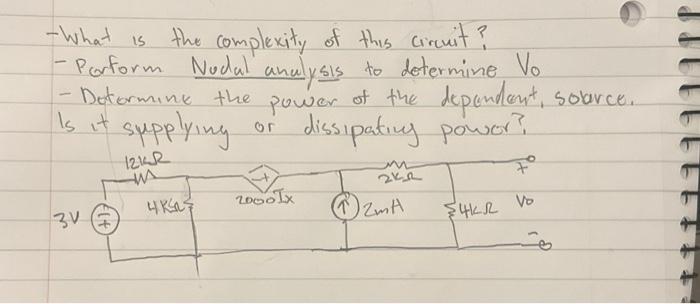 -What is the complexity of this circuit?
- Perform Nodal analysis to determine Vo
- Determine the power of the dependent source.
Is it supplying or dissipating power?
12kΩ
2kΩ
+
3V
+
4KΩ
-+
2000Ix
2mA
4kΩ
Vo
-